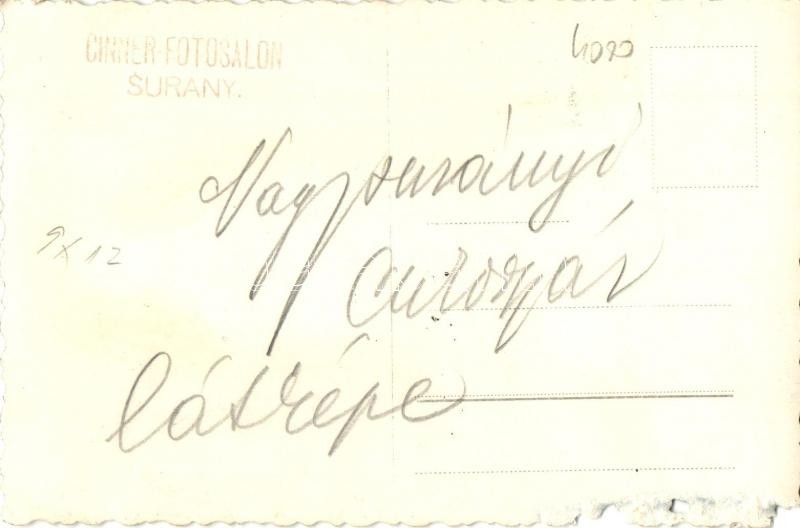 CINNER-FOTOSALON
ŠURANY.
4020
Nagysurányi
cukorgyár
9x12
látképe